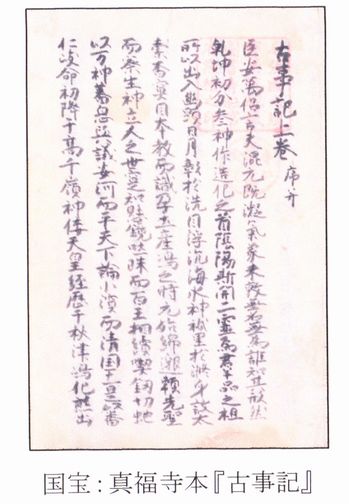 古事記上卷 序并
臣安萬侶言夫混元既凝氣象未效無名無為誰知其形然
乾坤初分參神作造化之首陰陽斯開二靈為群品之祖
所以出入幽顕日月彰於洗目浮沉海水神祇呈於滌身故太
素杳冥因本教而識孕土産嶋之時元始綿邈頼先聖
而察生神立人之世寔知懸鏡吐珠而百王相續喫釼切蛇
以万神蕃息與議安河而平天下論小濱而清国土是以番
仁岐命初降于高千嶺神倭天皇経歴于秋津嶋化熊出
国宝：真福寺本『古事記』